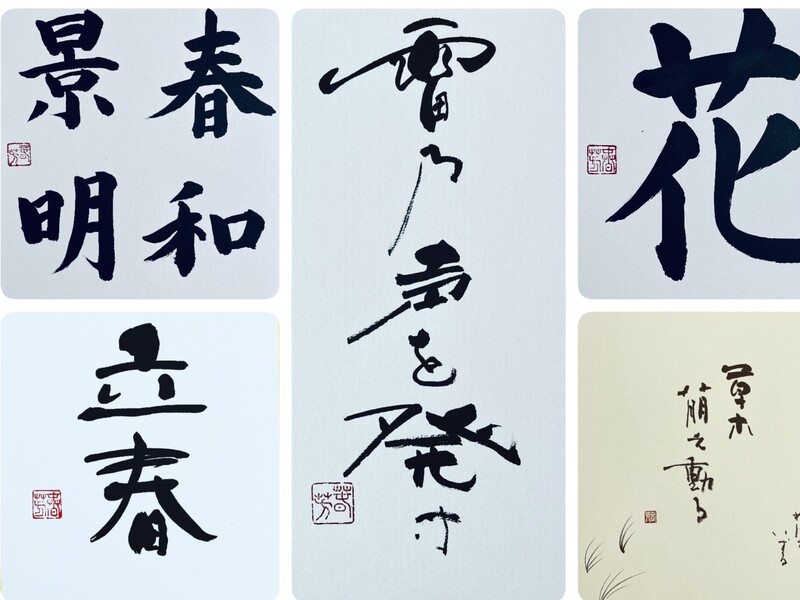 春和
景明
雷乃声を発す
花
立春
草木
萌え動る